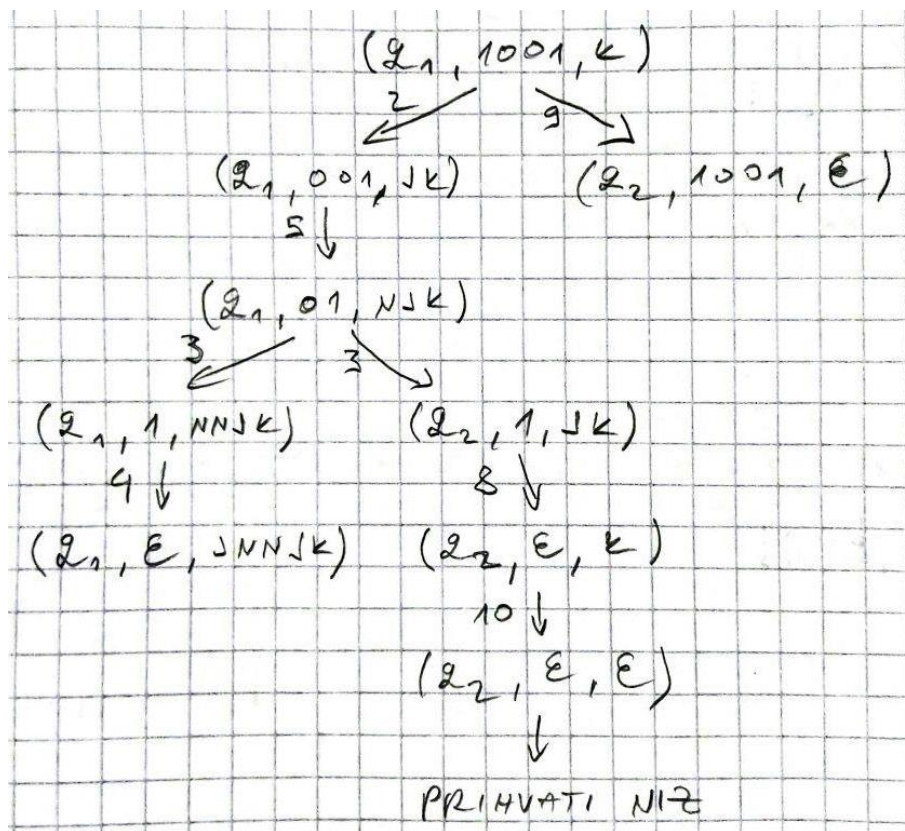 (q₁, 1001, K)
2 9
(q₁, 001, JK) (q₂, 1001, ε)
5
(q₁, 01, NJK)
3 3
(q₁, 1, NNJK) (q₂, 1, JK)
4 8
(q₁, ε, JNNJK) (q₂, ε, K)
10
(q₂, ε, ε)
PRIHVATI NIZ